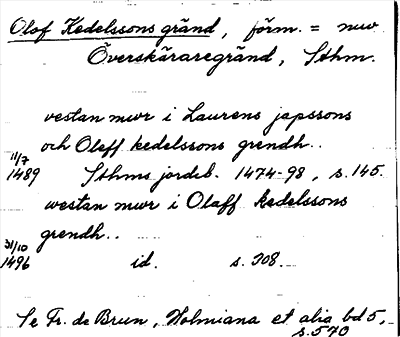 Olof Kedelssons gränd, förm. = nuv.
Överskäraregränd, Sthm.
vestan mwr i Laurens japssons
och Oleff kedelssons grendh..
11/7
1489 Sthms jordeb. 1474-98, s. 145.
westan mwr i Olaff kedelssons
grendh..
31/10
1496 id. s. 308.
Se Fr. de Brun, Holmiana et alia bd 5,
s. 570